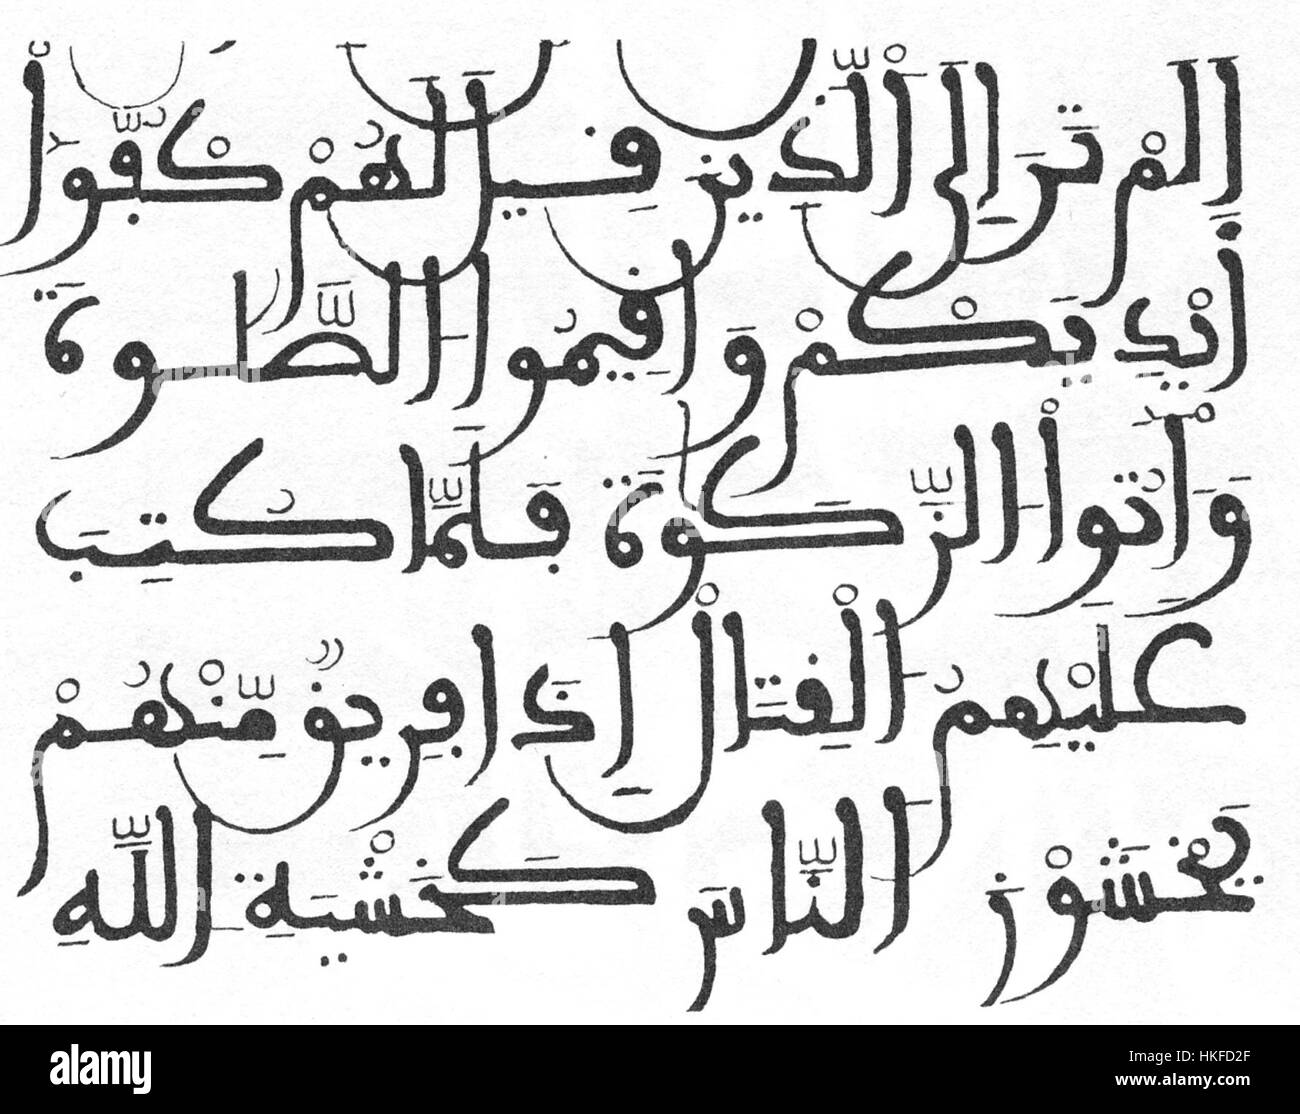 أَلَمْ تَرَ إِلَى اْلَّذِينَ فِيلَ لَهُمْ كُفُّوٓاْ
أَيْدِيَكُمْ وَأَفِيمُواْ الصَّلَوٰةَ
وَءَاتُواْ الزَّكَوٰةَ فَلَمَّا كُتِبَ
عَلَيْهِمُ الْفِتَالُ إِذَا فَرِيقٌ مِّنْهُمْ
يَخْشَوْنَ النَّاسَ كَخَشْيَةِ اللَّهِ
alamy
Image ID: HKFD2F
www.alamy.com